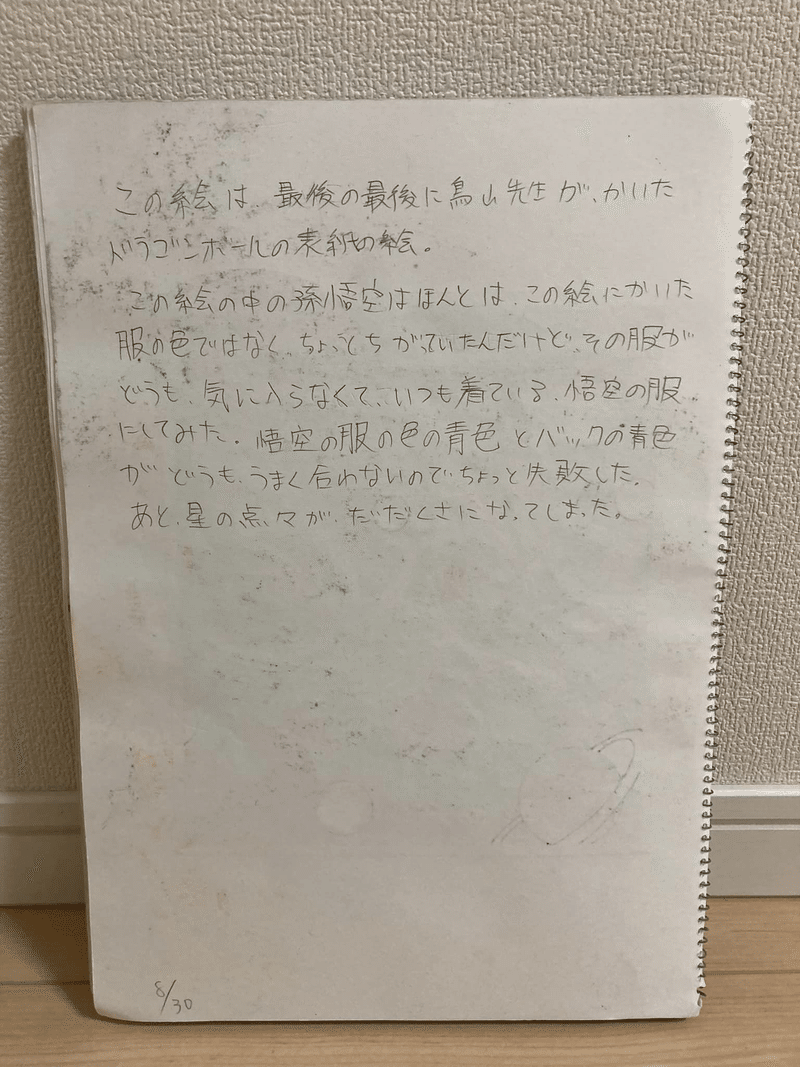 この絵は、最後の最後に鳥山先生が、かいた
ドラゴンボールの表紙の絵。
この絵の中の孫悟空はほんとは、この絵にかいた
服の色ではなく、ちょっとちがっていたんだけど、その服が
どうも、気に入らなくて、いつも着ている、悟空の服
にしてみた。悟空の服の色の青色とバックの青色
がどうも、うまく合わないのでちょっと失敗した。
あと、星の点々が、だだくさになってしまった。
8/30